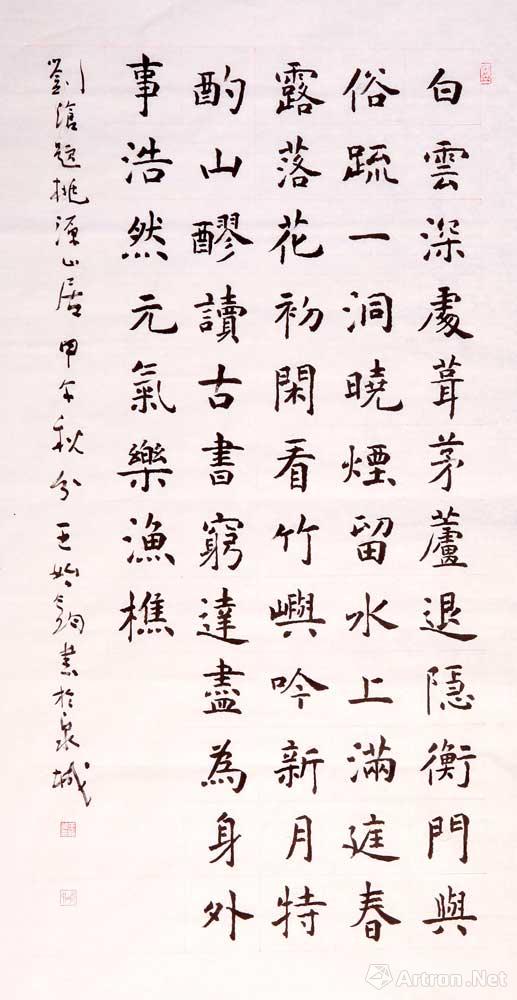 白雲深處葺茅蘆退隱衡門與
俗疏一洞曉煙留水上滿庭春
露落花初閑看竹嶼吟新月特
酌山醪讀古書窮達盡為身外
事浩然元氣樂漁樵
劉滄題桃源山居 甲午秋分 王始鈞書於泉城
Artron.Net